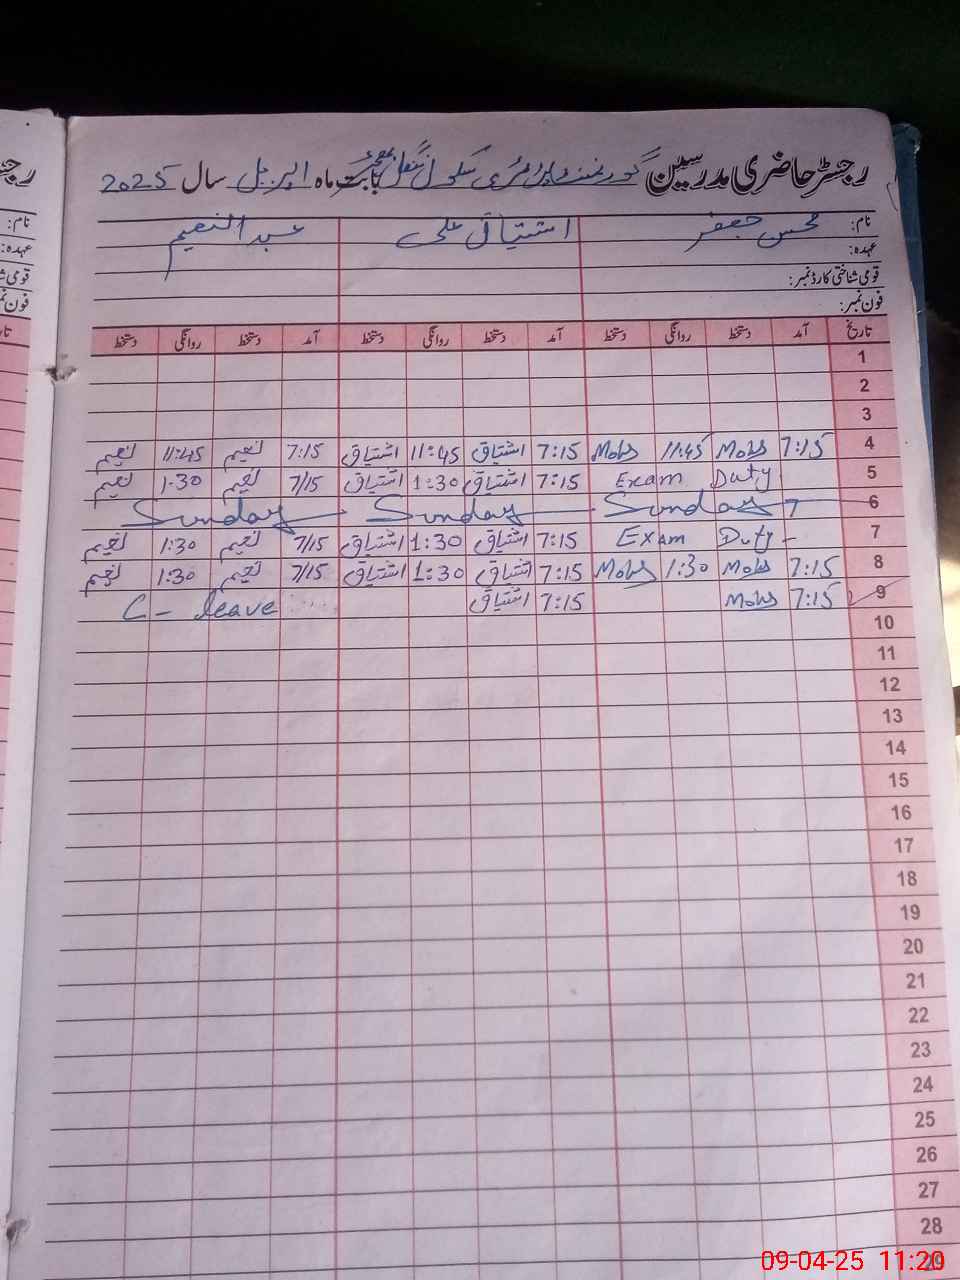 رجسٹر حاضری مدرسین گورنمنٹ پرائمری سکول بابت ماہ اپریل سال 2025
نام: محسن جعفر اشتیاق علی عبدالنعیم
عہدہ:
قومی شناختی کارڈ نمبر:
فون نمبر:
تاریخ آمد دستخط روانگی دستخط آمد دستخط روانگی دستخط آمد دستخط روانگی دستخط
1
2
3
4 7:15 Mohs 11:45 Mohs 7:15 اشتیاق 11:45 اشتیاق 7:15 نعیم 11:45 نعیم
5 Exam Duty 7:15 اشتیاق 1:30 اشتیاق 7/15 نعیم 1:30 نعیم
6 Sunday Sunday Sunday
7 Exam Duty - 7:15 اشتیاق 1:30 اشتیاق 7/15 نعیم 1:30 نعیم
8 7:15 Mohs 1:30 Mohs 7:15 اشتیاق 1:30 اشتیاق 7/15 نعیم 1:30 نعیم
9 7:15 Mohs 7:15 اشتیاق C - leave
10
11
12
13
14
15
16
17
18
19
20
21
22
23
24
25
26
27
28
29
09-04-25 11:20